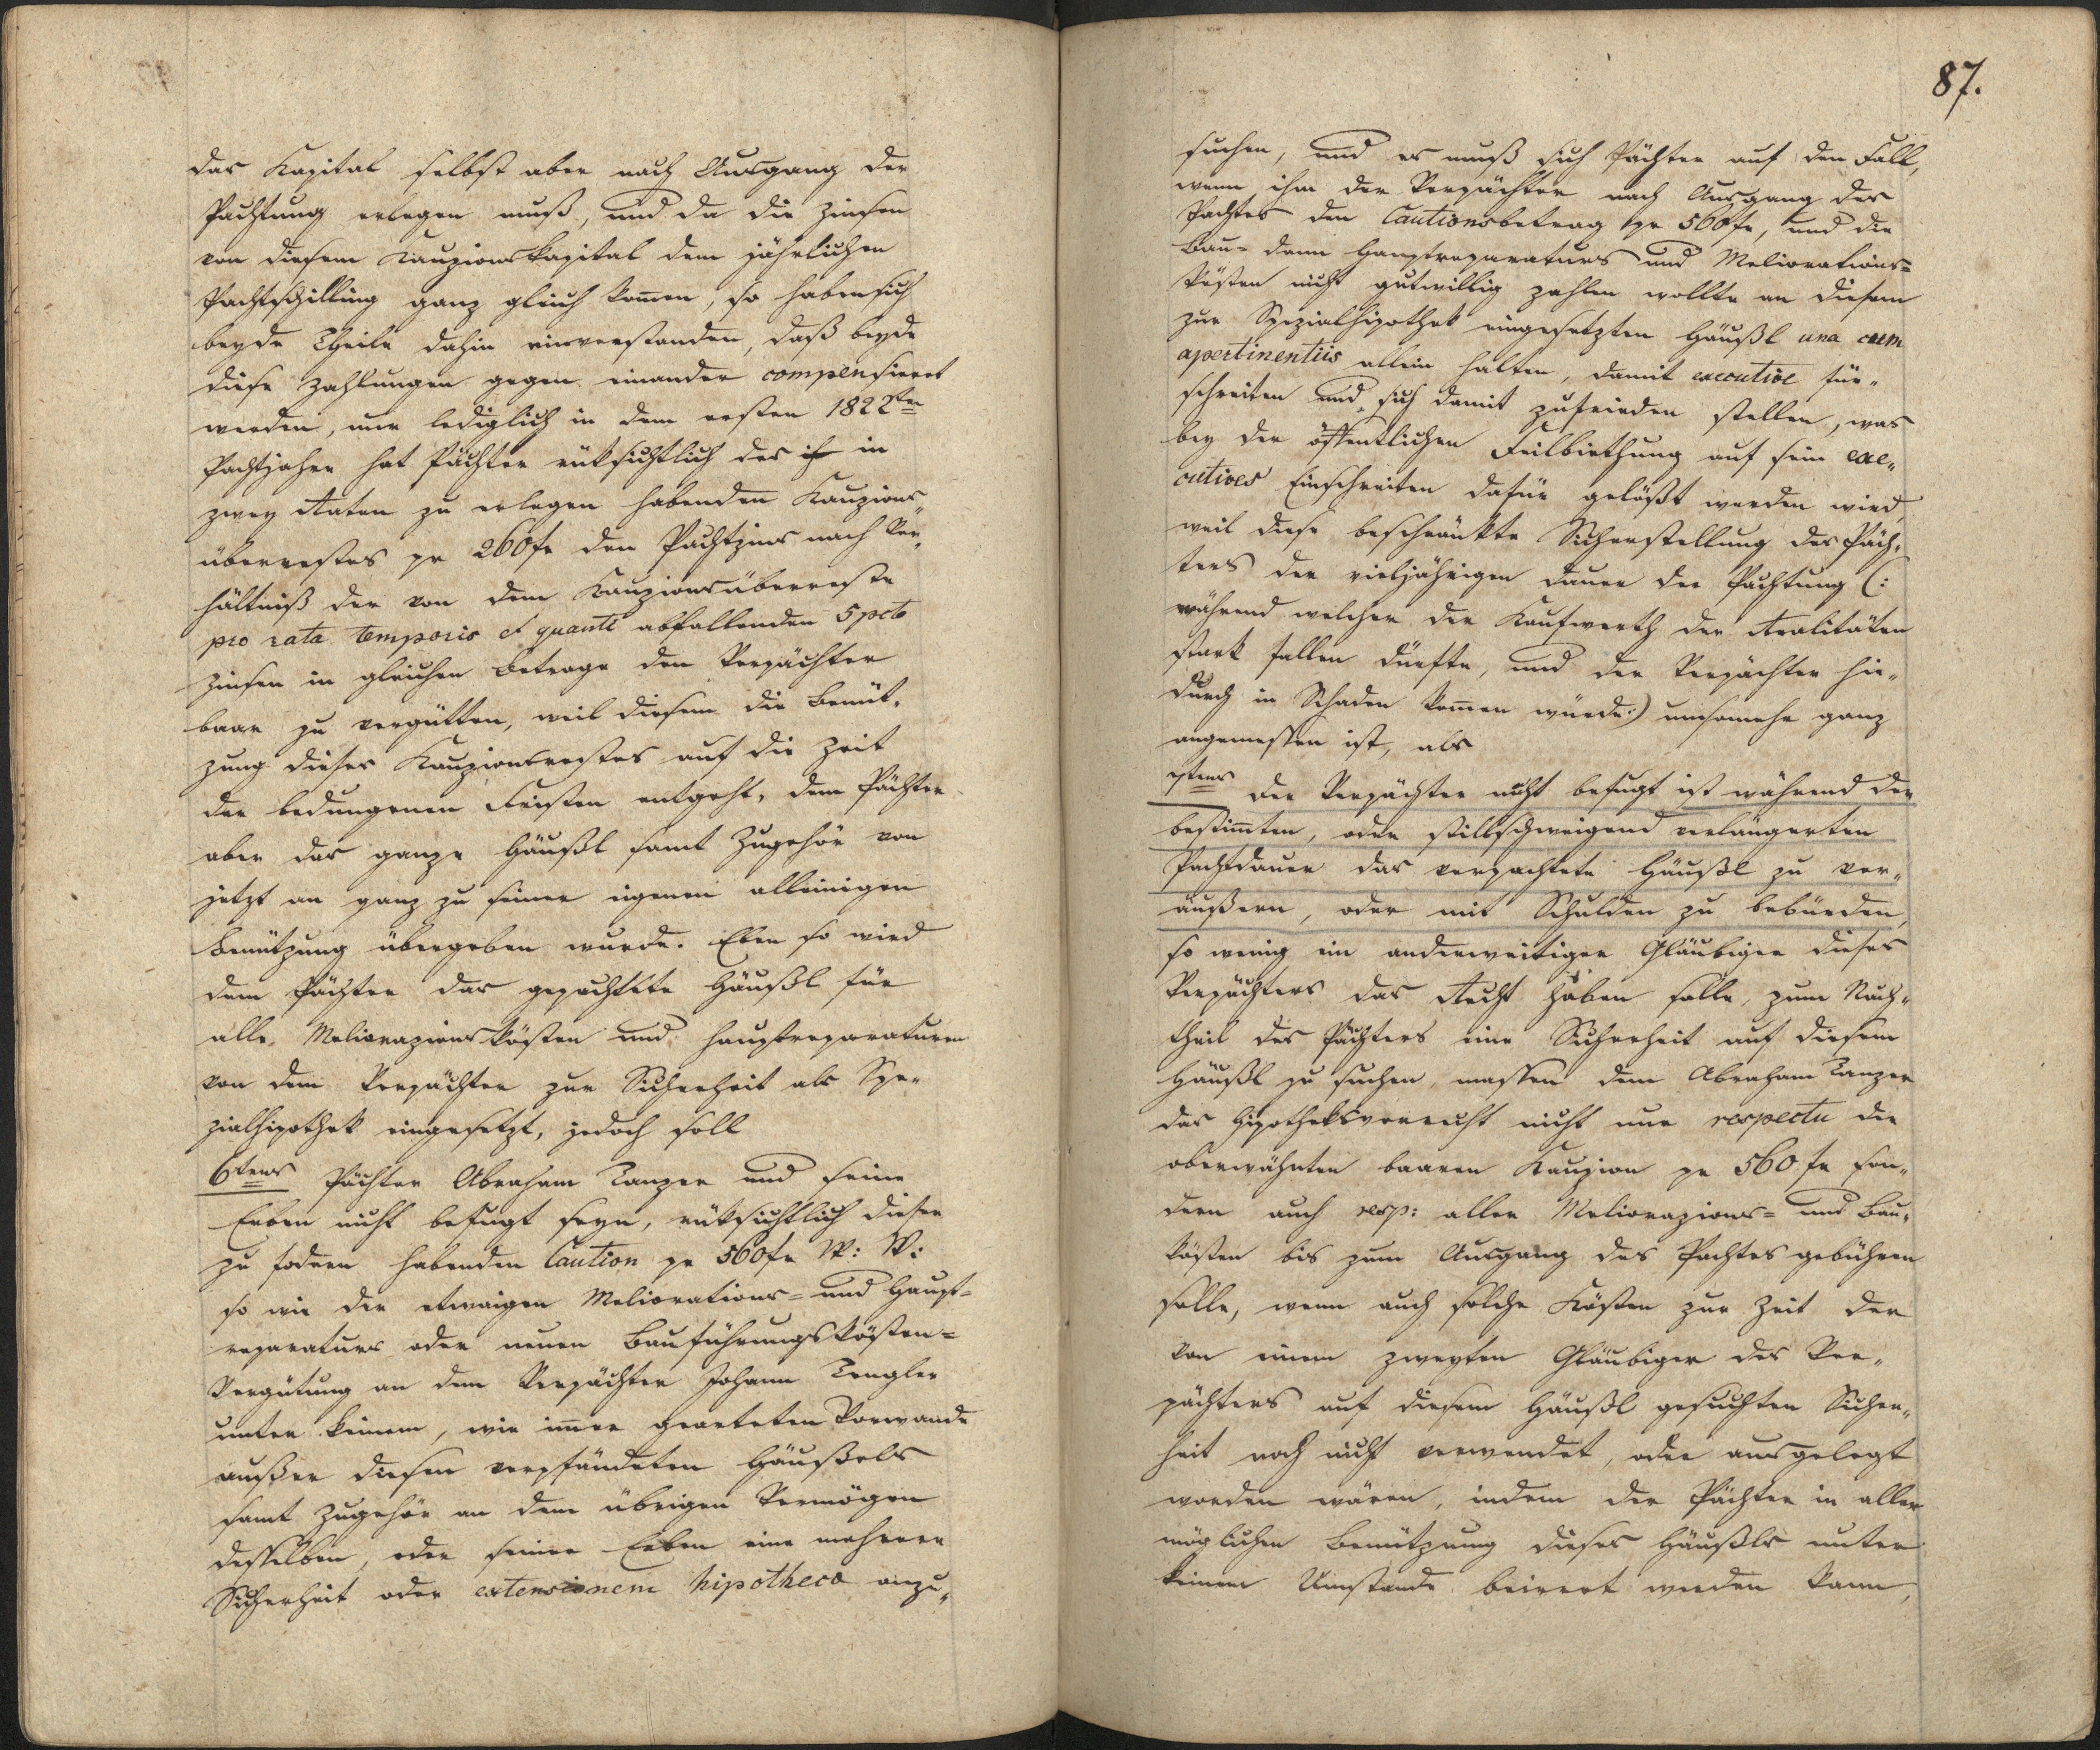 das Kapital selbst aber nach Ausgang der
Pachtung erlegen muß, und da die Zinsen
von diesem Kauzionskapital dem jährlichen
Pachtschilling ganz gleich kom̄en, so haben sich
beyde Theile dahin einverstanden, daß beyde
diese Zahlungen gegen einander compensieret
werden, nur lediglich in dem ersten 1822ten
Pachtjahre hat Pächter rüksichtlich des in
zwey Raten zu erlegen habenden Kauzions„
überrestes pr 260 fr den Pachtzins nach Ver„
hältniß der von dem Kauzionsüberreste
pro rata temporis et quanti abfallenden 5 pcto
Zinsen in gleichen Betrage dem Verpächter
baar zu vergütten, weil diesem die Benüt„
zung dieses Kauzionsrestes auf die Zeit
der bedungenen Fristen entgeht, dem Pächter
aber das ganze Häußl samt Zugehör von
jetzt an ganz zu seiner eigenen alleinigen
Benützung übergeben wurde. Eben so wird
dem Pächter das gepachtete Häußl für
alle Meliorazionskösten und Hauptreparaturen
von dem Verpächter zur Sicherheit als Spe„
zialhipothek eingesetzt, jedoch soll
6tens Pächter Abraham Tanzer und seine
Erben nicht befugt seyn, rüksichtlich dieser
zu fodern habenden Caution pr 560 fr W: W:
so wie der etwaigen Meliorations= und Haupt=
reparaturs oder neuen Bauführungskösten=
Vergütung an dem Verpächter Johann Tengler
unter keinem, wie im̄er gearteten Vorwande
außer diesem verpfändeten Häußels
samt Zugehör an dem übrigen Vermögen
desselben, oder seiner Erben eine mehrere
Sicherheit oder extensionem hipotheca anzu„
87.
suchen, und es muß sich Pächter auf den Fall,
wenn ihm der Verpächter nach Ausgang des
Pachtes den Cautionsbetrag pr 560 fr, und die
Bau= dann Hauptreparaturs und Meliorations=
Kösten nicht gutwillig zahlen wollte an diesem
zur Spezialhipothek eingesetzten Häußl una cum
apertinentiis allein halten, damit executive für„
schreiten und sich damit zufrieden stellen, was
bey der öffentlichen Feilbiethung auf sein exe„
cutives Einschreiten dafür gelößt werden wird,
weil diese beschränkte Sicherstellung des Päch„
ters der vieljährigen Dauer der Pachtung (:
während welcher der Kaufwerth der Realitäten
stark fallen dürfte, und der Verpächter hie„
durch in Schaden kom̄en würde:) umsomehr ganz
angemessen ist, als
7tens der Verpächter nicht befugt ist während der
bestim̄ten, oder stillschweigend verlängerten
Pachtdauer das verpachtete Häußl zu ver„
äußern, oder mit Schulden zu bebürden,
so wenig ein anderweitiger Gläubiger dieses
Verpächters das Recht haben solle, zum Nach„
theil des Pächters eine Sicherheit auf diesem
Häußl zu suchen, massen dem Abraham Tanzer
das Hipotheksvorrecht nicht nur respectu der
oberwähnten baaren Kauzion pr 560 fr son„
dern auch resp: aller Meliorazions= und Bau„
kösten bis zum Ausgang des Pachtes gebühren
solle, wenn auch solche Kösten zur Zeit der
von einem zweyten Gläubiger des Ver„
pächters auf diesem Häußl gesuchten Sicher„
heit noch nicht verwendet, oder ausgelegt
worden wären, indem der Pächter in aller
möglichen Benützung dieses Häußls unter
keinem Umstande beirret werden kann,